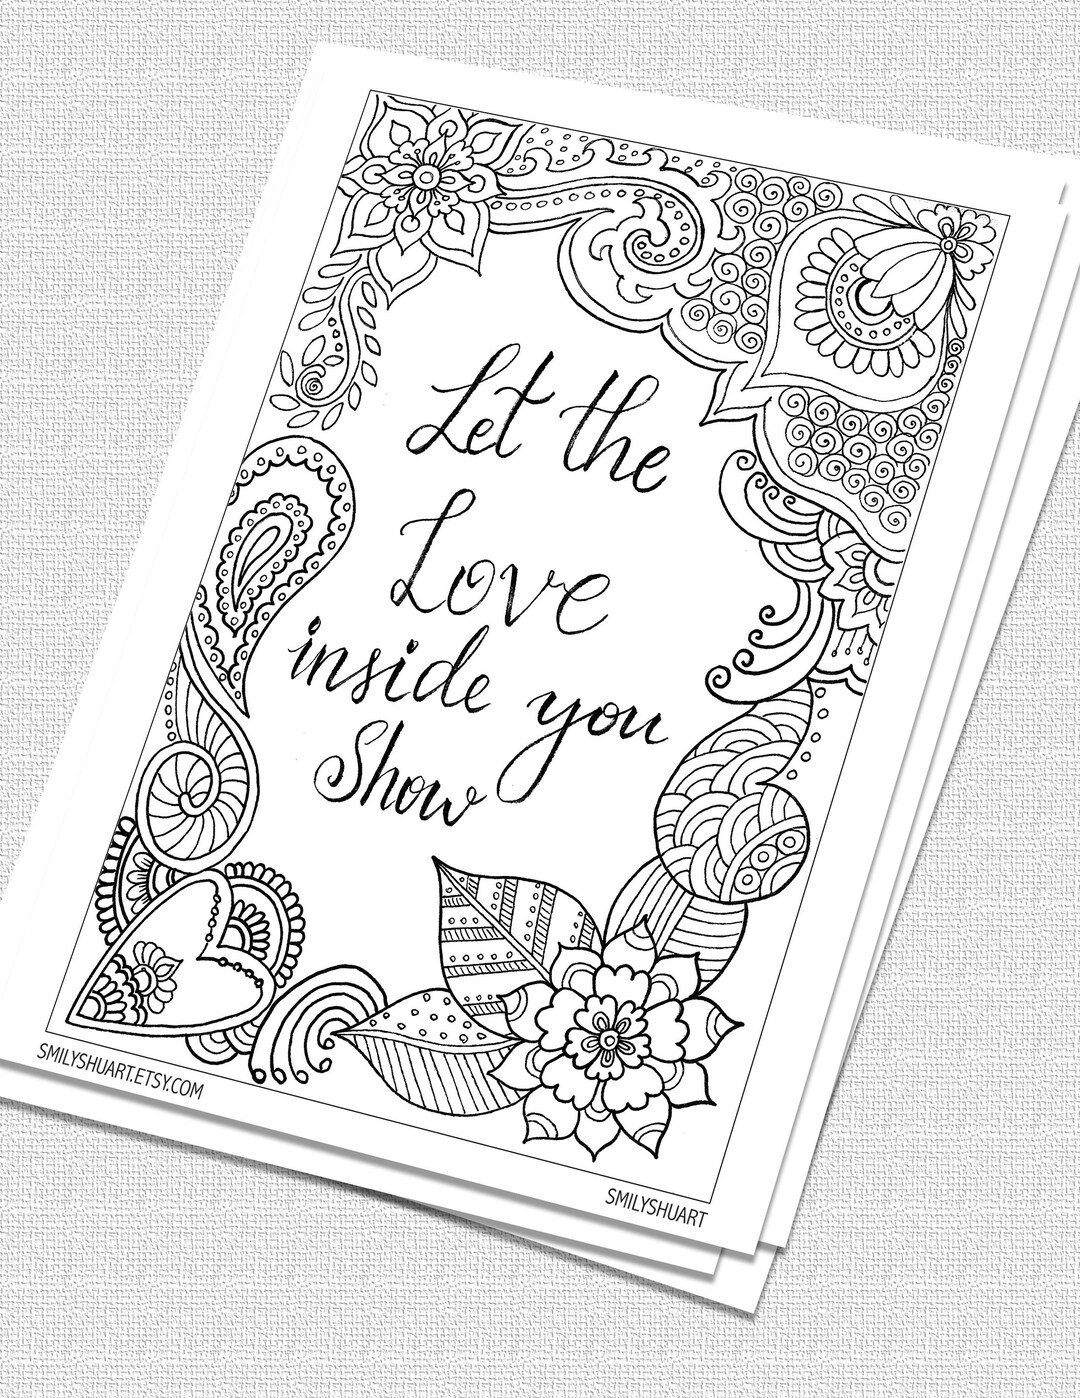 Let the
Love
inside you
Show
SMILYSHUART.ETSY.COM
SMILYSHUART